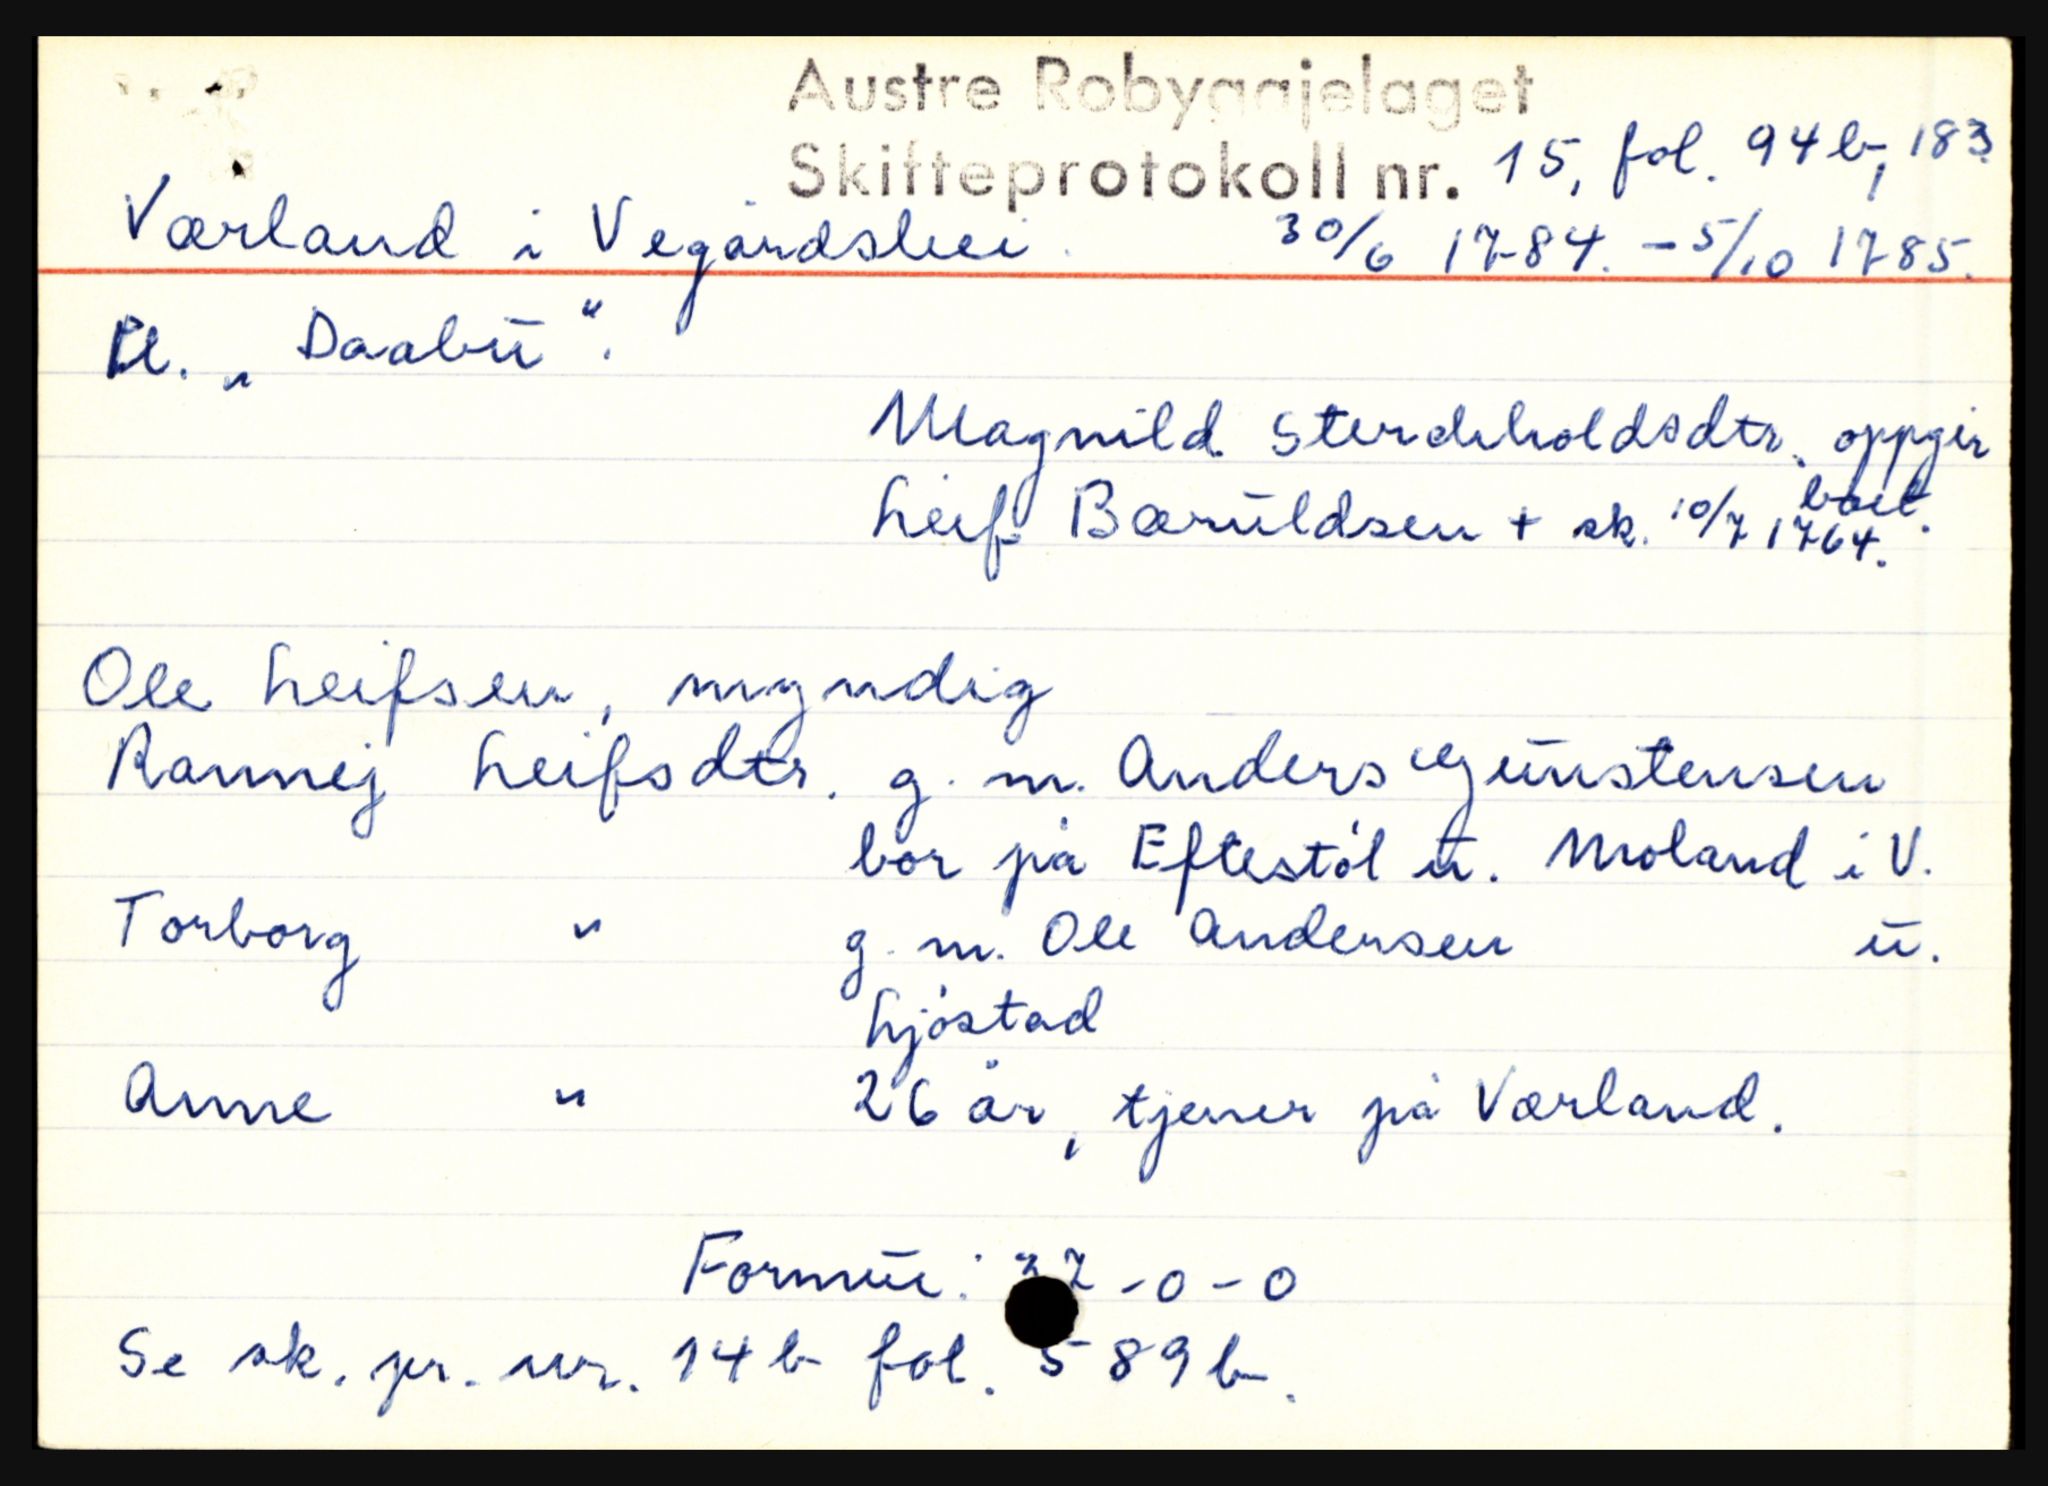 Austre Robyggjelaget
Skifteprotokoll nr. 15, fol. 94b, 183
Værland i Vegårdshei. 30/6 1784. – 5/10 1785.
Pl. „Daabu“.
Magnild Sterchholdsdtr. oppgir boet.
Leif Bæruldsen + sk. 10/7 1764.
Ole Leifsen, myndig
Rannej Leifsdtr. g. m. Anders Gunstensen
bor på Eftestøl u. Moland i V.
Torborg " g. m. Ole Andersen u.
Ljøstad
Anne " 26 år, tjener på Værland.
Formue: 32-0-0
Se sk. pr. nr. 14b fol. 589b.